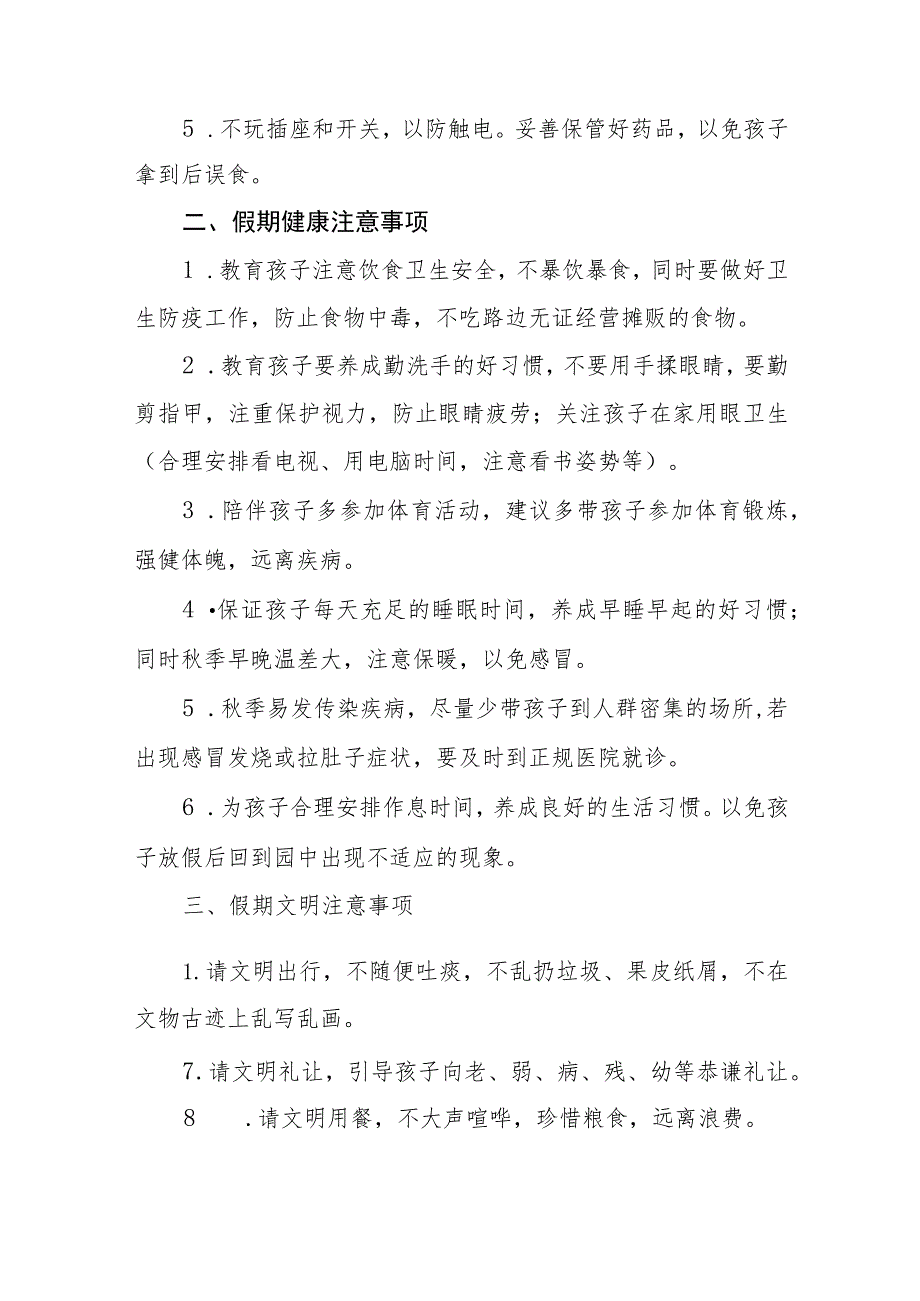 5 .不玩插座和开关，以防触电。妥善保管好药品，以免孩子
拿到后误食。
二、假期健康注意事项
1 .教育孩子注意饮食卫生安全，不暴饮暴食，同时要做好卫
生防疫工作，防止食物中毒，不吃路边无证经营摊贩的食物。
2 .教育孩子要养成勤洗手的好习惯，不要用手揉眼睛，要勤
剪指甲，注重保护视力，防止眼睛疲劳；关注孩子在家用眼卫生
（合理安排看电视、用电脑时间，注意看书姿势等）。
3 .陪伴孩子多参加体育活动，建议多带孩子参加体育锻炼，
强健体魄，远离疾病。
4 •保证孩子每天充足的睡眠时间，养成早睡早起的好习惯；
同时秋季早晚温差大，注意保暖，以免感冒。
5 .秋季易发传染疾病，尽量少带孩子到人群密集的场所,若
出现感冒发烧或拉肚子症状，要及时到正规医院就诊。
6 .为孩子合理安排作息时间，养成良好的生活习惯。以免孩
子放假后回到园中出现不适应的现象。
三、假期文明注意事项
1.请文明出行，不随便吐痰，不乱扔垃圾、果皮纸屑，不在
文物古迹上乱写乱画。
7.请文明礼让，引导孩子向老、弱、病、残、幼等恭谦礼让。
8 .请文明用餐，不大声喧哗，珍惜粮食，远离浪费。